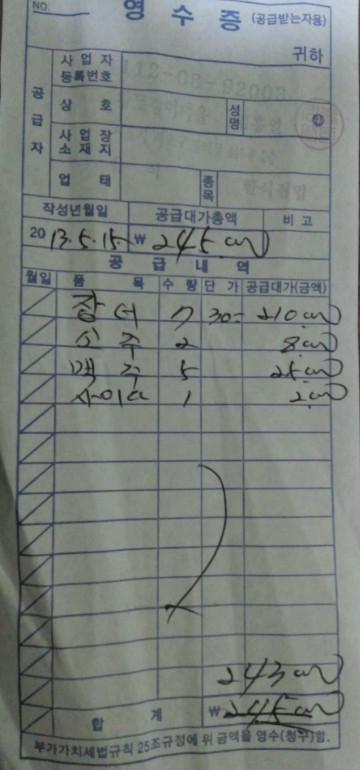 NO.
영 수 증 (공급받는자용)
귀하
공급자
사업자 등록번호 112-08-92003
상 호 성명 ㊞
사업장 소재지
업 태 종목
작성년월일 공급대가총액 비 고
2013.5.15 ₩ 245,000
공 급 내 역
월일 품 목 수 량 단 가 공급대가(금액)
장어 7 30- 210,000
소주 2 8,000
맥주 5 25,000
사이다 1 2,000
243,000
합 계 ₩245,000
부가가치세법규칙 25조규정에 위 금액을 영수(청구)함.